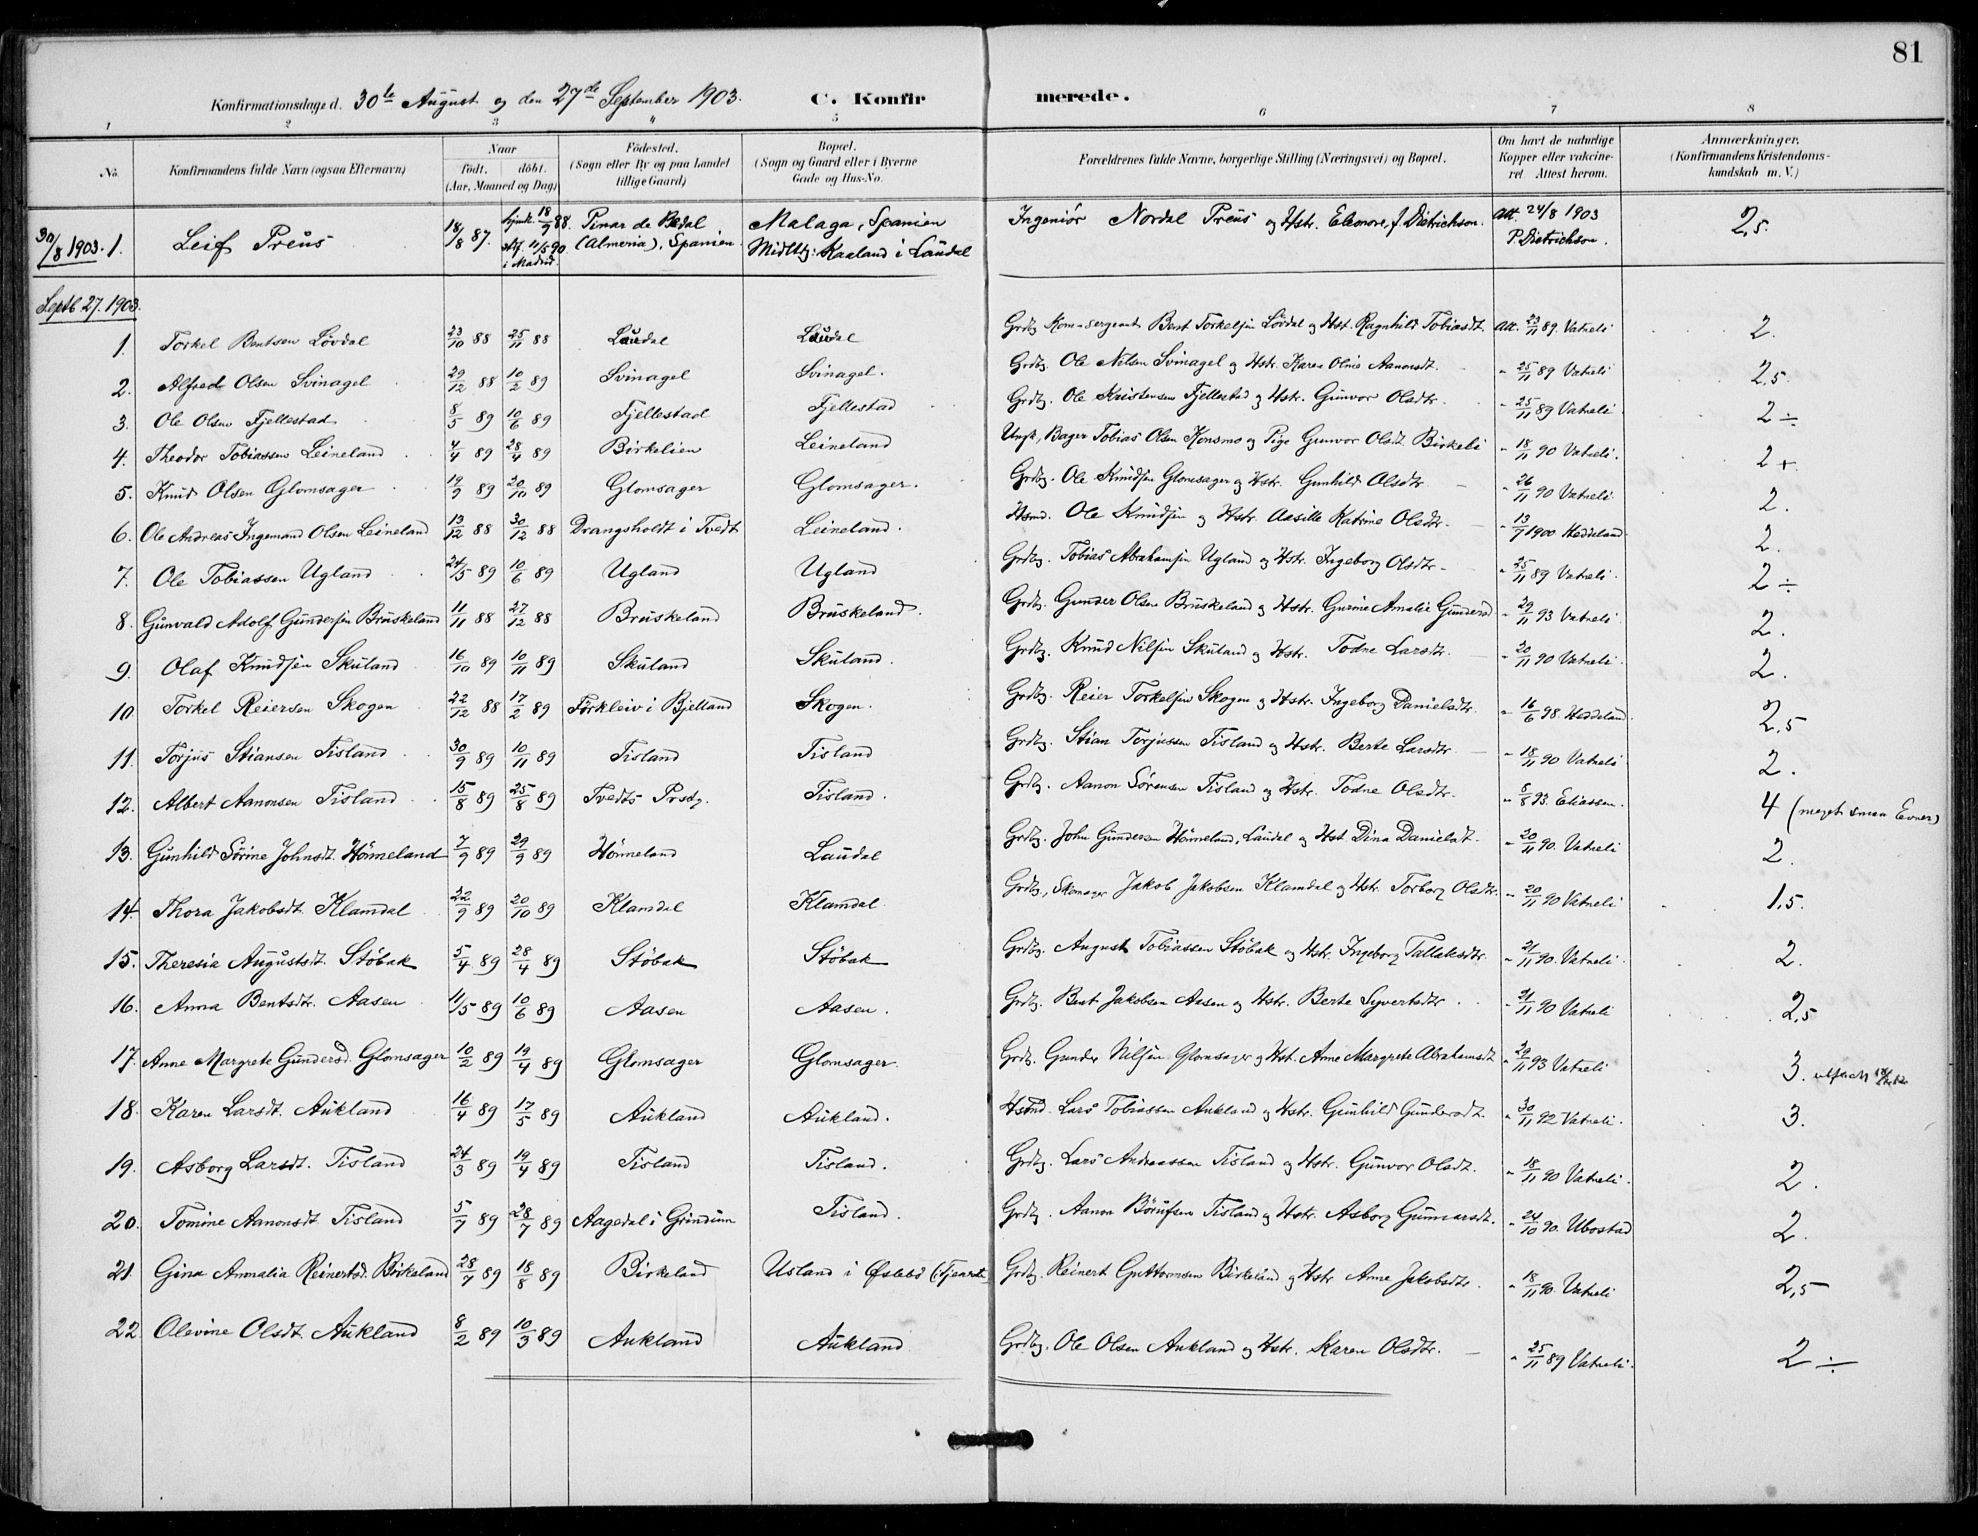 81
Konfirmationsdage d. 30te August og den 27de September 1903. C. Konfirmerede.
1 2 3 4 5 6 7 8
No. Konfirmandens fulde Navn (ogsaa Efternavn) Naar født. døbt. (Aar, Maaned og Dag) Fødested. (Sogn eller By og paa Landet tillige Gaard) Bopæl. (Sogn og Gaard eller i Byerne Gade og Hus-No. Forældrenes fulde Navne, borgerlige Stilling (Næringsvei) og Bopæl. Om havt de naturlige Kopper eller vakcineret. Attest herom. Anmærkninger. (Konfirmandens Kristendomskundskab m. V.)
30/8 1903. 1. Leif Preus 18/8 87. hjemd. 18/9 88. 11/5 90 i Madrid. Pinar de Bedal (Almeria), Spanien. Malaga, Spanien Midltg: Kaaland i Laudal Ingeniør Nordal Preus og Hstr. Eleonore, f. Dietrichson. Att. 24/8 1903 P. Dietrichson. 2,5.
Septb 27. 1903.
1. Torkel Bentsen Løvdal 23/10 88 25/11 88 Laudal Laudal Grdbg. Kom-sergeant Bent Torkelsen Løvdal og Hst. Ragnhild Tobiasdt. Att. 23/11 89. Vatneli 2.
2. Alfred Olsen Svinagel 29/12 88 10/2 89 Svinagel Svinagel. Grdbg. Ole Nilsen Svinagel og Hstr. Karen Oline Aanonsdt. " 25/11 89 Vatneli 2,5.
3. Ole Olsen Fjellestad 8/5 89 10/6 89 Fjellestad Fjellestad Grdbg. Ole Kristensen Fjellestad og Hstr. Gunvor Olsdtr. " 25/11 89 Vatneli 2 ÷
4. Theodor Tobiassen Leineland 4/4 89 28/4 89 Birkelien Leineland Ungk., Bager Tobias Olsen Konsmo og Pige Gunvor Olsdt. Birkeli " 18/11 90 Vatneli. 2 +.
5. Knud Olsen Glomsager 19/9 89 20/10 89 Glomsager Glomsager. Grdbg. Ole Knudsen Glomsager og Hstr. Gunhild Olsdtr. " 26/11 90 Vatneli 2.
6. Ole Andreas Ingemand Olsen Leineland 13/12 88 30/12 88 Drangsholdt i Tvedt Leineland. Hsmd. Ole Knudsen og Hstr. Aasille Katrine Olsdtr. " 13/7 1900 Heddeland. 2.
7. Ole Tobiassen Ugland 24/5 89 10/6 89 Ugland Ugland Grdbg. Tobias Abrahamsen Ugland og Hstr. Ingeborg Olsdtr. " 25/11 89 Vatneli. 2 ÷
8. Gunvald Adolf Gundersen Bruskeland 11/11 88 27/12 88 Bruskeland Bruskeland. Grdbg. Gunder Olsen Bruskeland og Hstr. Gurine Amalie Gundersd " 29/11 93 Vatneli 2.
9. Olaf Knudsen Skuland 16/10 89 10/11 89 Skuland Skuland. Grdbg. Knud Nilsen Skuland og Hstr. Todne Larsdtr. " 20/11 90 Vatneli. 2.
10. Torkel Reiersen Skogen 22/12 88 17/2 89 Førkleiv i Bjelland Skogen. Grdbg. Reier Torkelsen Skogen og Hstr. Ingeborg Danielsdtr. " 16/6 98. Heddeland. 2,5
11. Torjus Stiansen Tisland 30/9 89 10/11 89 Tisland Tisland Grdbg. Stian Torjussen Tisland og Hstr. Berte Larsdtr. " 18/11 90 Vatneli 2.
12. Albert Aanonsen Tisland 15/8 89 25/8 89 Tvedts Prstg. Tisland. Grdbg. Aanon Sørensen Tisland og Hstr. Todne Olsdtr. " 8/8 93. Eliassen. 4 (meget smaa Evner)
13. Gunhild Sørine Johnsdt. Hønneland 7/9 89 29/9 89 Hønneland Laudal Grdbg. John Gundersen Hønneland, Laudal og Hst. Dina Danielsdt. " 20/11 90. Vatneli 2.
14. Thora Jakobsdt. Klamdal 22/9 89 20/10 89 Klamdal Klamdal. Grdbg., Skomager Jakob Jakobsen Klamdal og Hstr. Torborg Olsdtr. " 20/11 90 Vatneli 1,5.
15. Theresia Augustsdt. Støbak 5/4 89 28/4 89 Støbak Støbak Grdbg. August Tobiassen Støbak og Hstr. Ingeborg Tallaksdtr. " 21/11 90. Vatneli. 2.
16. Anna Bentsdtr. Aasen 11/5 89 10/6 89 Aasen Aasen. Grdbg. Bent Jakobsen Aasen og Hstr. Berte Syvertsdtr. " 21/11 90 Vatneli 2,5
17. Anne Margrete Gundersd. Glomsager 10/2 89 19/4 89 Glomsager Glomsager. Grdbg. Gunder Nilsen Glomsager og Hst. Anne Margrete Abrahamsdt " 29/11 93 Vatneli 3.
18. Karen Larsdt. Aukland 16/4 89 17/5 89 Aukland Aukland. Hsmd. Lars Tobiassen Aukland og Hstr. Gunhild Gundersdt. " 30/11 92 Vatneli. 3.
19. Asborg Larsdt. Tisland 24/3 89 19/4 89 Tisland Tisland. Grdbg. Lars Andreassen Tisland og Hstr. Gunvor Olsdt. " 18/11 90 Vatneli. 2.
20. Tomine Aanonsdt. Tisland 5/7 89 28/7 89 Aagedal i Grindum Tisland. Grdbg. Aanon Børufsen Tisland og Hstr. Asborg Gunnarsdt. " 24/10 90. Ubostad 2.
21. Gina Ammalia Reinertsd. Birkeland 28/7 89 18/8 89 Birkeland Usland i Øslebø (Tjenest Grdbg. Reinert Guttormsen Birkeland og Hstr. Anne Jakobsdtr. " 18/11 90. Vatneli 2,5
22. Olevine Olsdt. Aukland 8/2 89 10/3 89 Aukland Aukland Grdbg. Ole Olsen Aukland og Hstr. Karen Olsdtr. " 25/11 89 Vatneli. 2 ÷